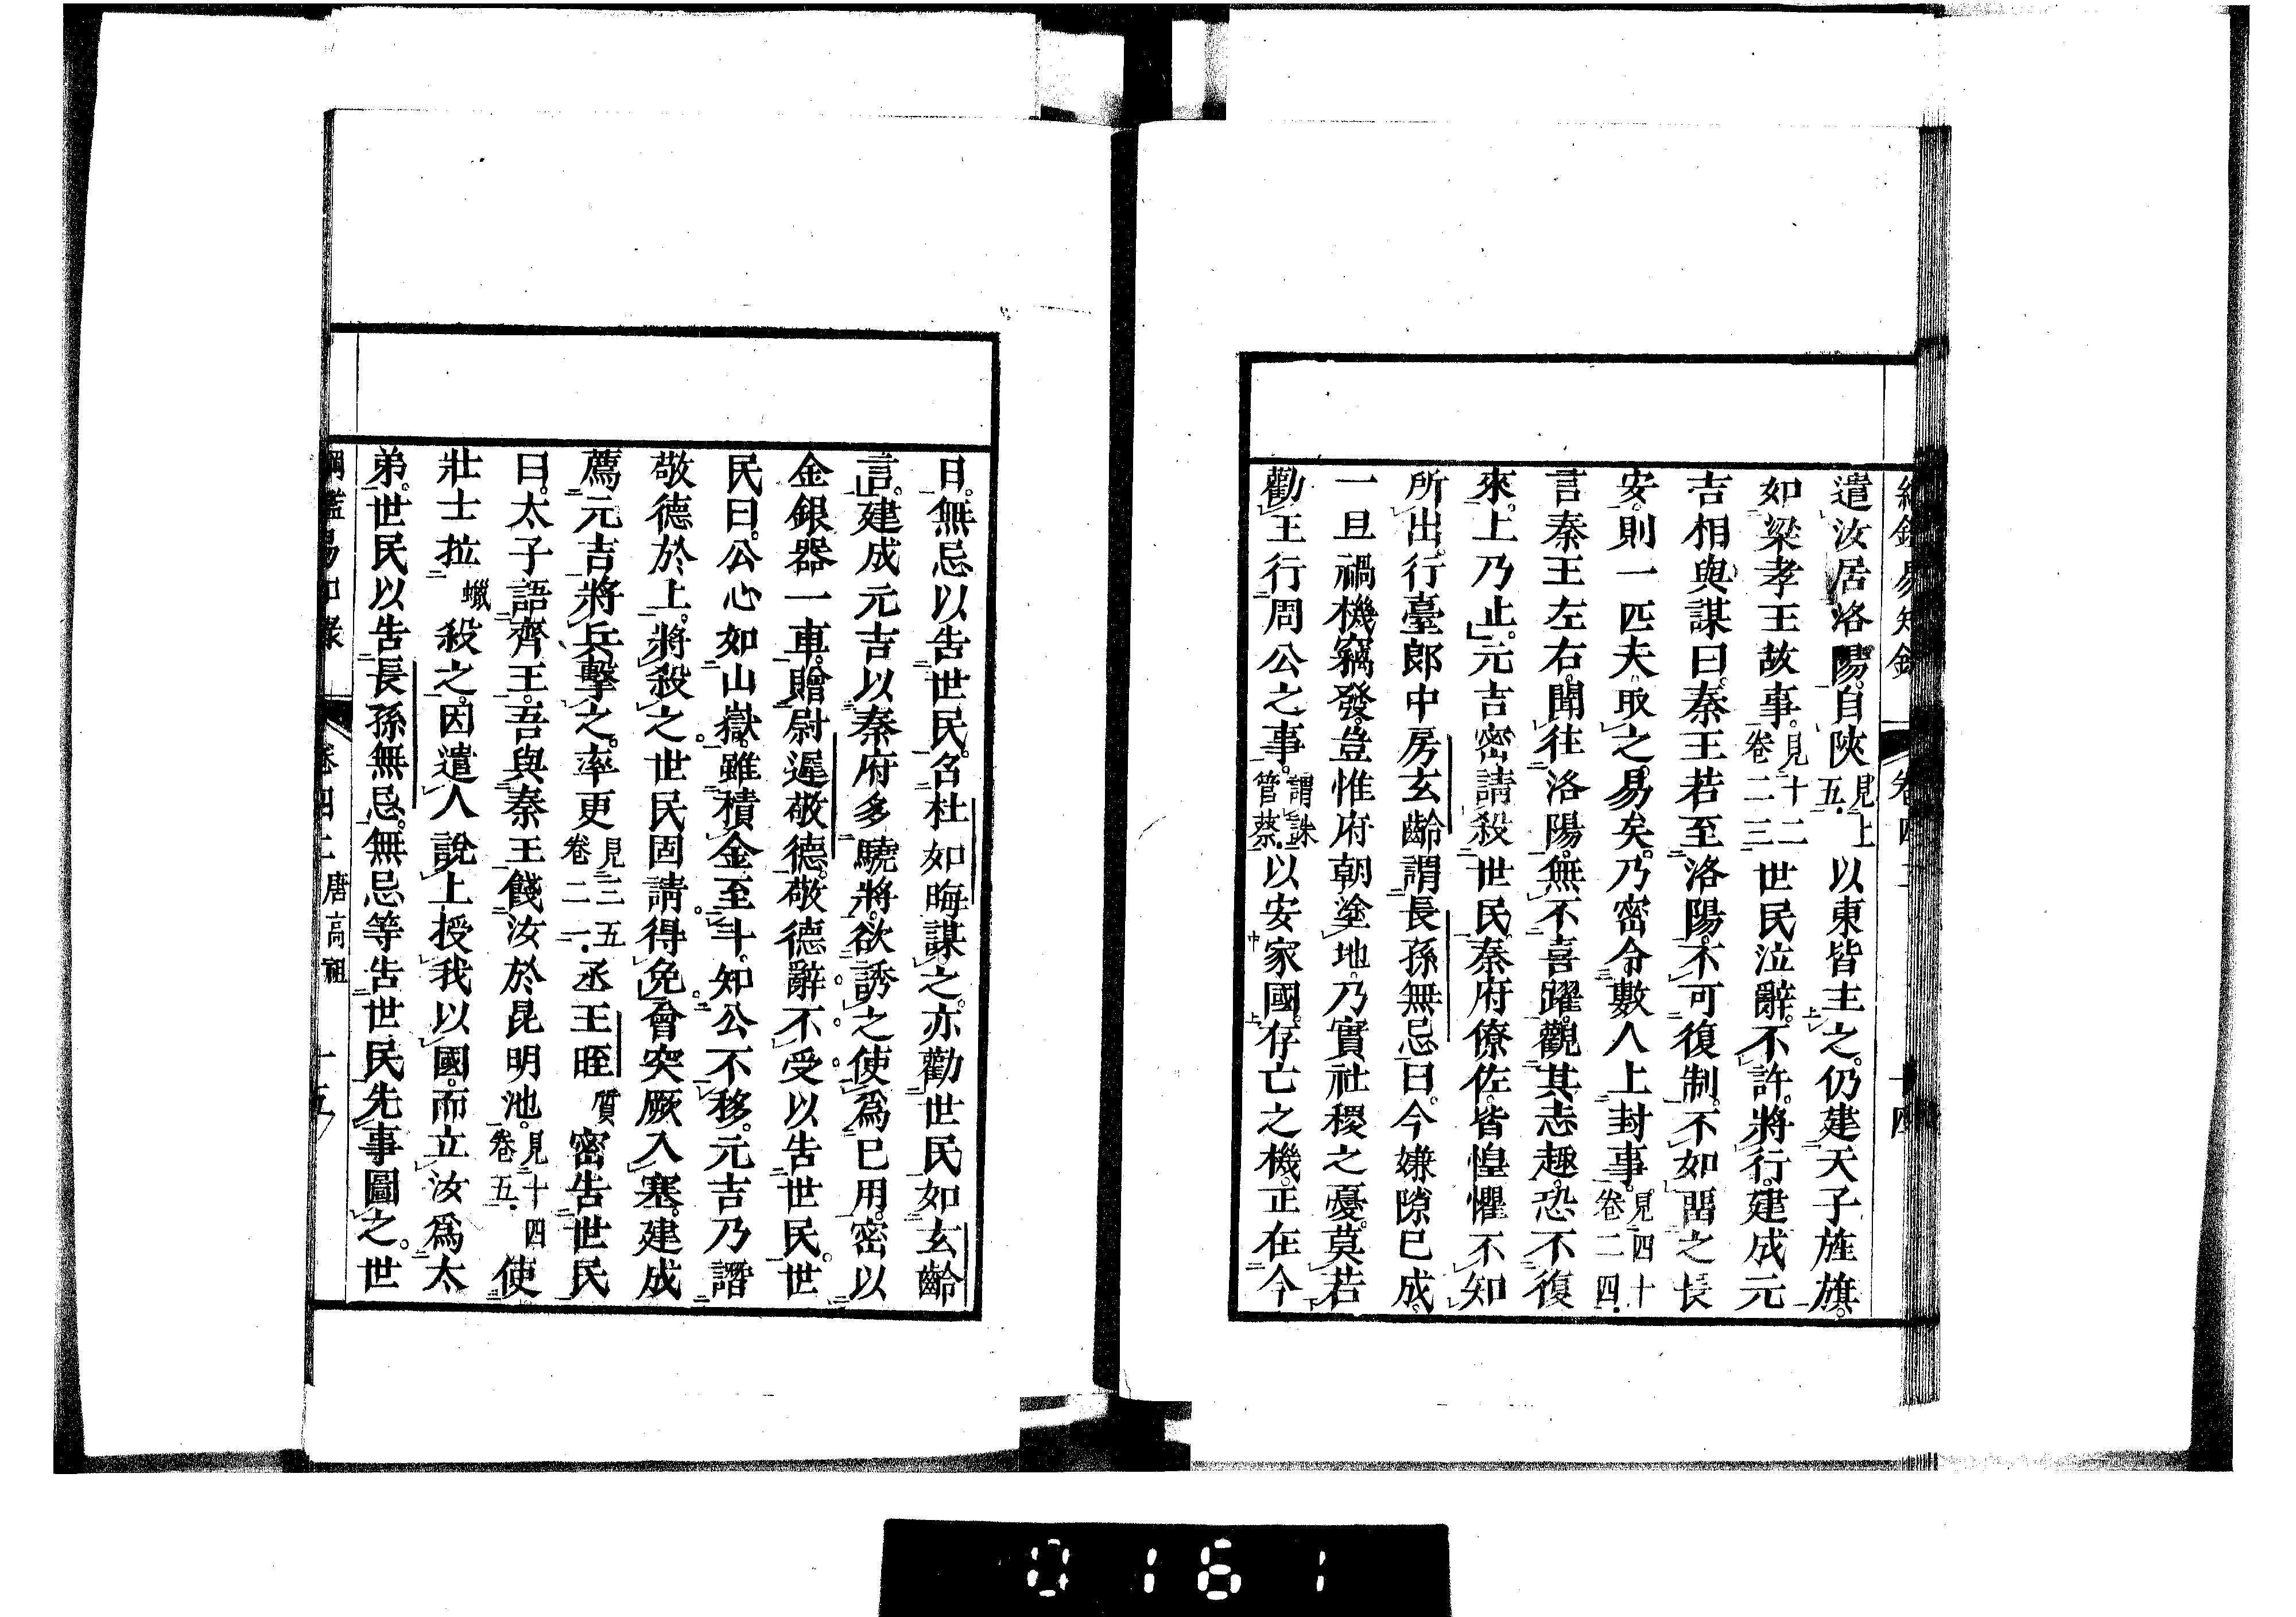 遣汝居洛陽。自陝見上五。以東皆主之。仍建天子旌旗。
如梁孝王故事。見十二卷二三世民泣辭。不許。將行。建成元
吉相與謀曰。秦王若至洛陽。不可復制。不如留之長
安。則一匹夫取之易矣。乃密令數人上封事。見四十卷二四。
言秦王左右。聞往洛陽。無不喜躍。觀其志趣。恐不復
來。上乃止。元吉密請殺世民。秦府僚佐。皆惶懼不知
所出。行臺郎中房玄齡謂長孫無忌曰。今嫌隙已成。
一旦禍機竊發。豈惟府朝塗地。乃實社稷之憂。莫若
勸王行周公之事。謂誅管蔡。以安家國。存亡之機。正在今
日。無忌以告世民。召杜如晦謀之。亦勸世民如玄齡
言。建成元吉以秦府多驍將。欲誘之使爲已用。密以
金銀器一車。贈尉遲敬德。敬德辭不受。以告世民。世
民曰。公心如山嶽。雖積金至斗。知公不移。元吉乃譖
敬德於上。將殺之。世民固請得免。會突厥入塞。建成
薦元吉將兵擊之。率更見三五卷二一。丞王晊質密告世民
曰。太子語齊王。吾與秦王餞汝於昆明池。見十四卷五。使
壯士拉蠟殺之。因遣人說上授我以國。而立汝爲太
弟。世民以告長孫無忌。無忌等告世民先事圖之。世
綱鑑易知錄 卷四二 唐高祖 十五
0161